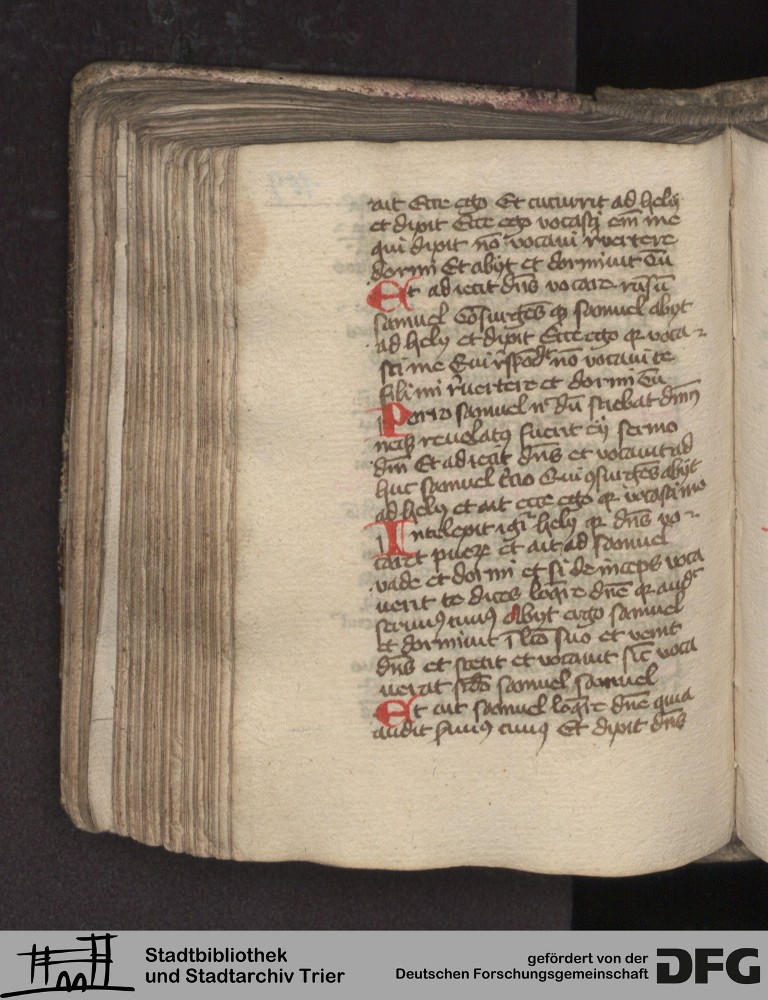 ait Ecce ego Et cucurrit ad hely
et dixit Ecce ego vocasti em̄ me
qui dixit nō vocavi rͮvertere
dormi Et abijt et dormiuit Cū
Et adiecit dn̄s vocare rūsū
samuel Cōsurgēs qꝫ samuel abijt
ad hely et dixit Ecce ego qꝛ voca-
sti me Qui rn̄dit nō vocaui te
fili mi rͮvertere et dormi Cū
Porro samuel nͦdū sciebat dn̄m
necꝫ reuelatꝰ fuerit ei sermo
dn̄i Et adiecit dn̄s et vocauit ad
huc samuel tͨcio Qui ꝯsurgēs abijt
ad hely et ait ecce ego qꝛ vocasti me
Intelexit igiͬ hely qꝛ dn̄s vo-
caret puerū et ait ad samuel
vade et dormi et si deinceps voca
uerit te dices loqͬe dn̄e qꝛ audͭ
seruꝰ tuus Abijt ergo samuel
et dormiuit ī lc̄o suo et venit
dn̄s et stetit et vocauit sic̄ voca
uerat scd̄o samuel samuel
Et ait samuel loqͬe dn̄e quia
audit suuꝰ tuuꝰ Et dixit dn̄s
Stadtbibliothek
und Stadtarchiv Trier
gefördert von der
Deutschen Forschungsgemeinschaft
DFG